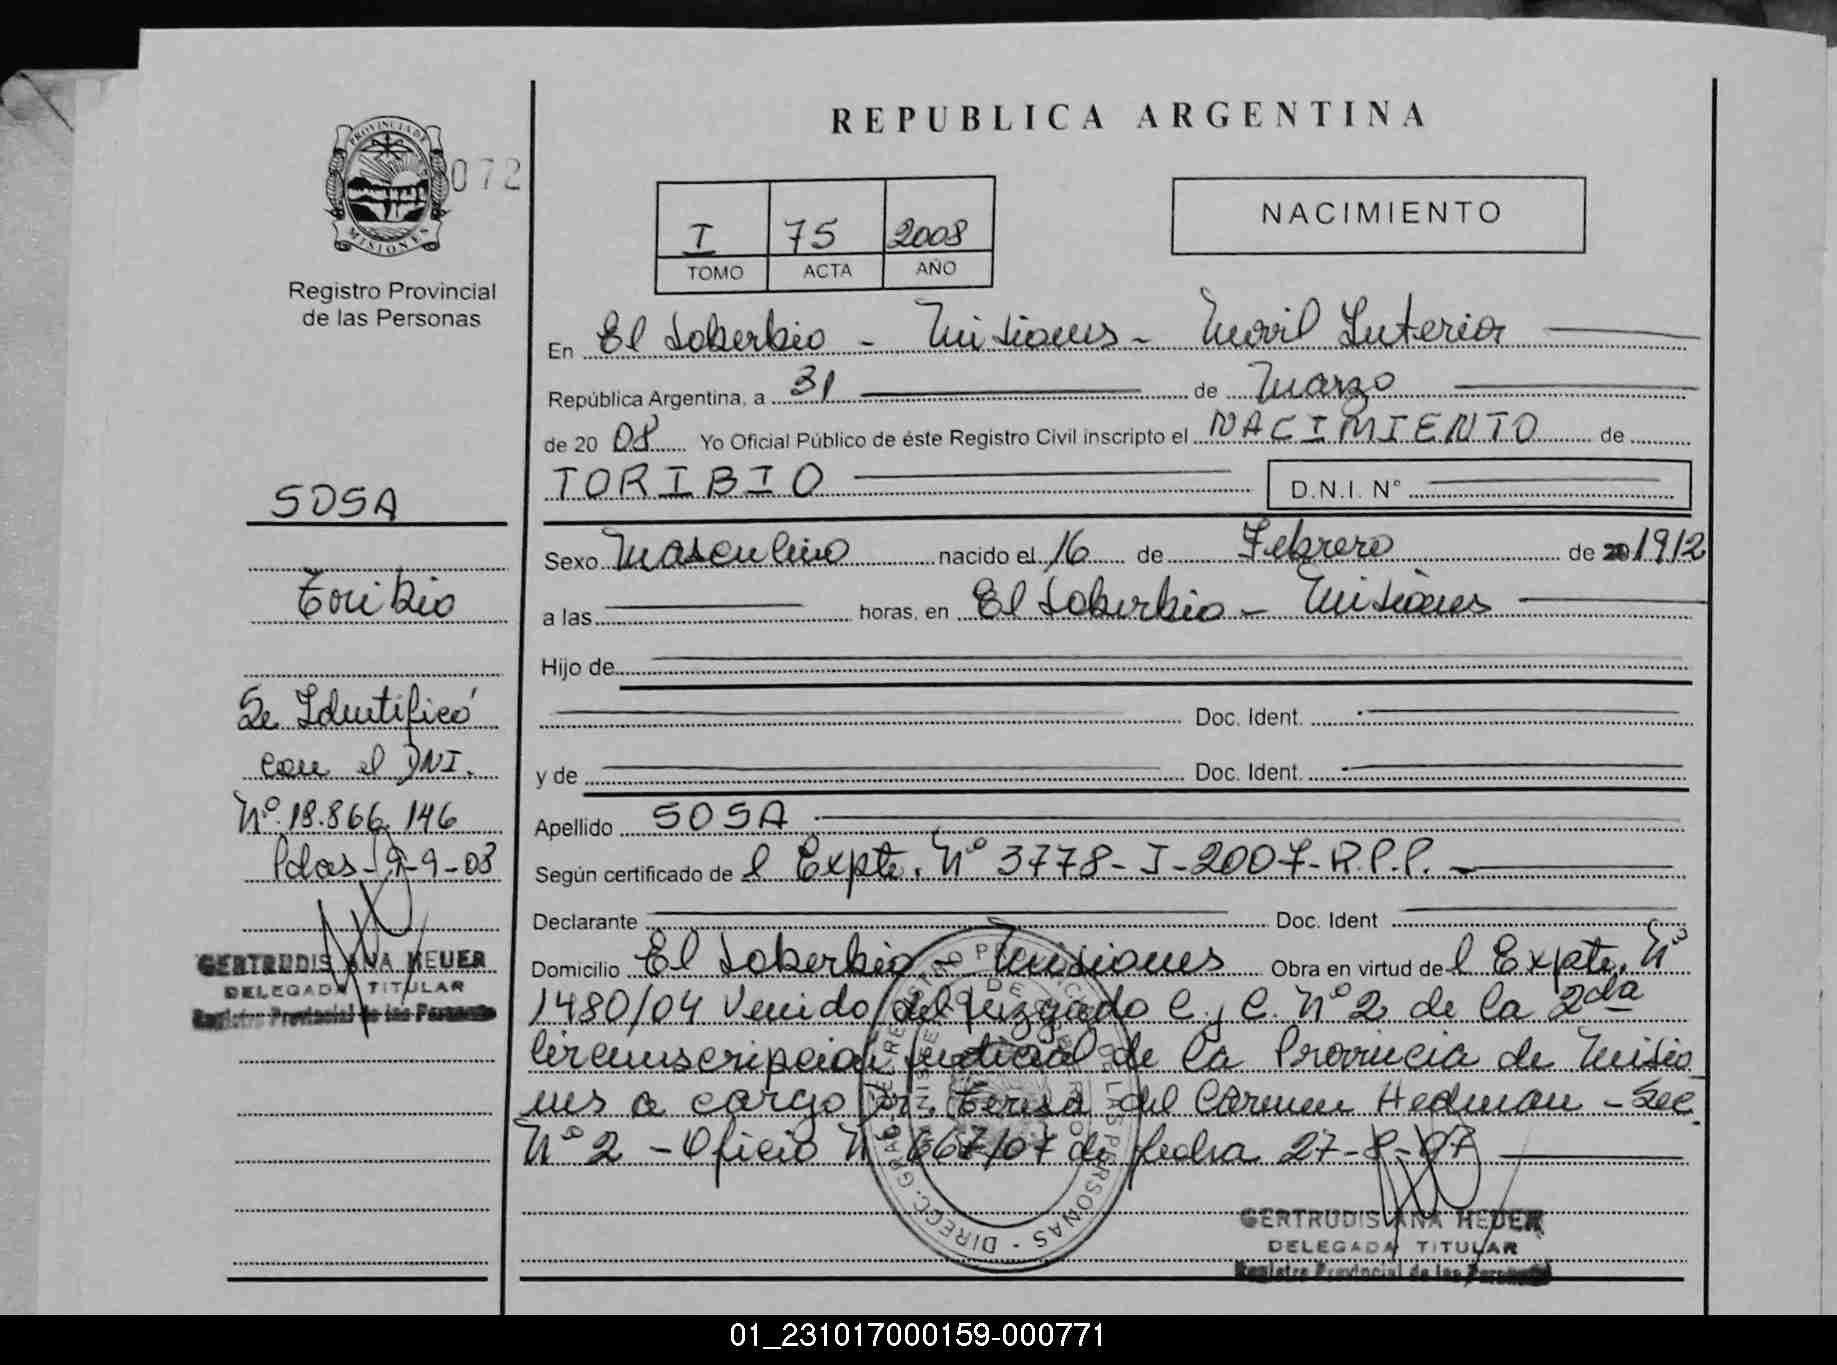 PROVINCIA DE
MISIONES
072
Registro Provincial
de las Personas
SOSA
Toribio
Se Identificó
con el DNI.
Nº 18.866.146
Pdas-19-9-03
GERTRUDIS ANA HEUER
DELEGADA TITULAR
Registro Provincial de las Personas
REPUBLICA ARGENTINA
I 75 2008
TOMO ACTA AÑO
NACIMIENTO
En El Soberbio - Misiones - Movil Interior
República Argentina, a 31 de Marzo
de 20 08 Yo Oficial Público de éste Registro Civil inscripto el NACIMIENTO de
TORIBIO D.N.I. Nº
Sexo Masculino nacido el 16 de Febrero de 20 1912
a las horas, en El Soberbio - Misiones
Hijo de
Doc. Ident.
y de Doc. Ident.
Apellido SOSA
Según certificado de l Expte. Nº 3778-I-2007-R.P.P.
Declarante Doc. Ident
Domicilio El Soberbio - Misiones Obra en virtud de l Expte. Nº
1480/04 Venido del Juzgado C. y C. Nº 2 de la 2da
Circunscripcion Judicial de la Provincia de Misio
nes a cargo Dr. Teresa del Carmen Hedman - Sec.
Nº 2 - Oficio Nº 667/07 de fecha 27-8-07
GERTRUDIS ANA HEUER
DELEGADA TITULAR
Registro Provincial de las Personas
01_231017000159-000771